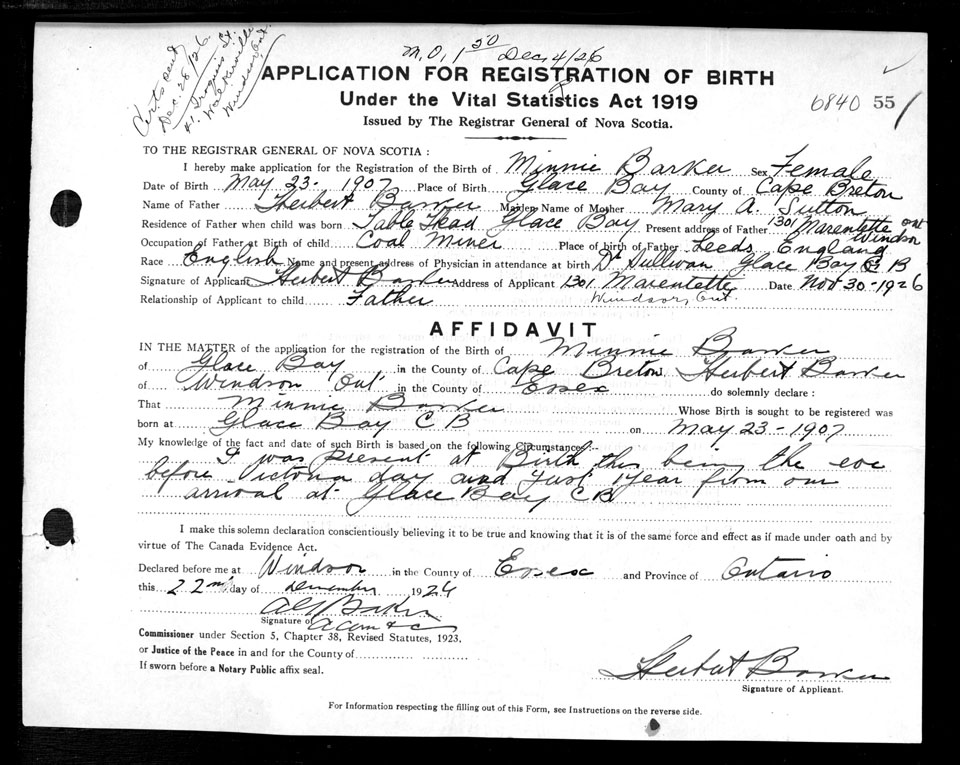 M.O. 1 50 Dec 4/26
Certs sent
Dec. 28/26.
Iroquois St.
Walkerville
Windsor, Ont.
APPLICATION FOR REGISTRATION OF BIRTH
Under the Vital Statistics Act 1919
6840 55
Issued by The Registrar General of Nova Scotia.
TO THE REGISTRAR GENERAL OF NOVA SCOTIA :
I hereby make application for the Registration of the Birth of Minnie Barker Sex Female
Date of Birth May 23 - 1907 Place of Birth Glace Bay County of Cape Breton
Name of Father Herbert Barker Maiden Name of Mother Mary A. Sutton
Residence of Father when child was born Table Head Glace Bay Present address of Father 1301 Marentette Windsor Ont
Occupation of Father at Birth of child Coal Miner Place of birth of Father Leeds England
Race English Name and present address of Physician in attendance at birth Dr Sullivan Glace Bay C B
Signature of Applicant Herbert Barker Address of Applicant 1301 Marentette Date Nov 30 - 1926
Relationship of Applicant to child Father Windsor, Ont.
AFFIDAVIT
IN THE MATTER of the application for the registration of the Birth of Minnie Barker
of Glace Bay in the County of Cape Breton Herbert Barker
of Windsor Ont in the County of Essex do solemnly declare :
That Minnie Barker Whose Birth is sought to be registered was
born at Glace Bay C B on May 23 - 1907
My knowledge of the fact and date of such Birth is based on the following Circumstances:-
I was present at Birth this being the eve
before Victoria day and just 1 year from our
arrival at Glace Bay C B
I make this solemn declaration conscientiously believing it to be true and knowing that it is of the same force and effect as if made under oath and by
virtue of The Canada Evidence Act.
Declared before me at Windsor in the County of Essex and Province of Ontario
this 22nd day of December 1926
Signature of A Com &c
Commissioner under Section 5, Chapter 38, Revised Statutes, 1923,
or Justice of the Peace in and for the County of
If sworn before a Notary Public affix seal.
Herbert Barker
Signature of Applicant.
For Information respecting the filling out of this Form, see Instructions on the reverse side.